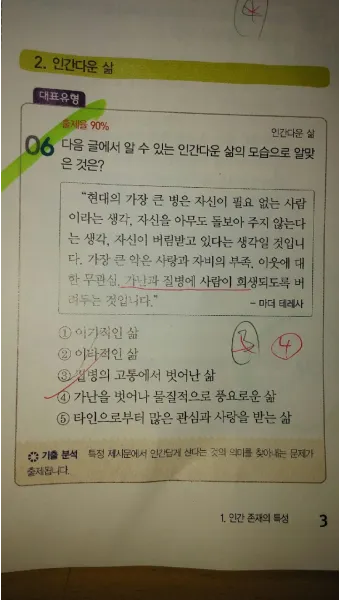 2. 인간다운 삶
대표유형
출제율 90%
인간다운 삶
06 다음 글에서 알 수 있는 인간다운 삶의 모습으로 알맞
은 것은?
“현대의 가장 큰 병은 자신이 필요 없는 사람
이라는 생각, 자신을 아무도 돌보아 주지 않는다
는 생각, 자신이 버림받고 있다는 생각일 것입니
다. 가장 큰 악은 사랑과 자비의 부족, 이웃에 대
한 무관심, 가난과 질병에 사람이 희생되도록 버
려두는 것입니다.”
- 마더 테레사
① 이기적인 삶
② 이타적인 삶
③ 질병의 고통에서 벗어난 삶
④ 가난을 벗어나 물질적으로 풍요로운 삶
⑤ 타인으로부터 많은 관심과 사랑을 받는 삶
3 ④
기출 분석 특정 제시문에서 인간답게 산다는 것의 의미를 찾아내는 문제가
출제됩니다.
1. 인간 존재의 특성 3